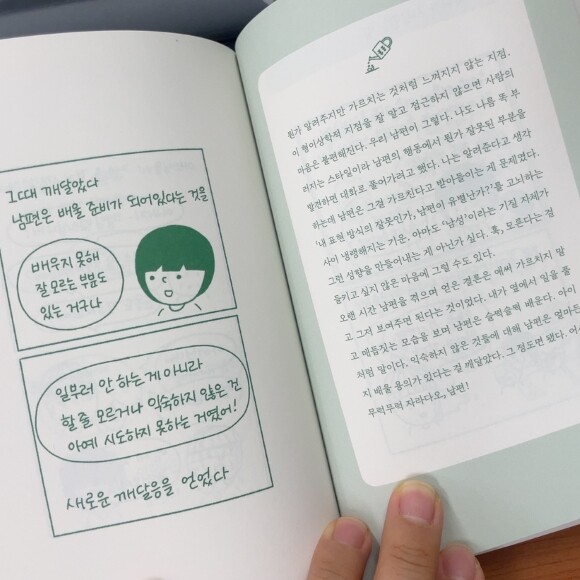 그때 깨달았다
남편은 배울 준비가 되어있다는 것을
배우지 못해
잘 모르는 부분도
있는 거구나
일부러 안 하는 게 아니라
할 줄 모르거나 익숙하지 않은 건
아예 시도하지 못하는 거였어!
새로운 깨달음을 얻었다
뭔가 알려주지만 가르치는 것처럼 느껴지지 않는 지점.
이 형이상학적 지점을 잘 알고 접근하지 않으면 사람의
마음은 불편해진다. 우리 남편이 그렇다. 나도 나름 똑 부
러지는 스타일이라 남편의 행동에서 뭔가 잘못된 부분을
발견하면 대화로 풀어가려고 했다. 나는 알려준다고 생각
하는데 남편은 그걸 가르친다고 받아들이는 게 문제였다.
'내 표현 방식의 잘못인가, 남편이 유별난가?'를 고뇌하는
사이 냉랭해지는 기운. 아마도 '남성'이라는 기질 자체가
그런 성향을 만들어내는 게 아닌가 싶다. 혹, 모른다는 걸
들키고 싶지 않은 마음에 그럴 수도 있다.
오랜 시간 남편을 겪으며 얻은 결론은 애써 가르치지 말
고 그저 보여주면 된다는 것이었다. 내가 옆에서 일을 풀
고 매듭짓는 모습을 보며 남편은 슬쩍슬쩍 배운다. 아이
처럼 말이다. 익숙하지 않은 것들에 대해 남편은 얼마든
지 배울 용의가 있다는 걸 깨달았다. 그 정도면 됐다.
무럭무럭 자라다오, 남편!